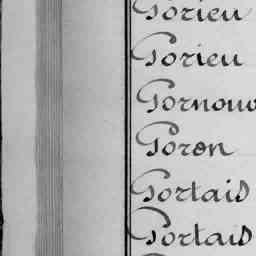 Gorieu
Gorieu
Goron
Gortais
Gortais